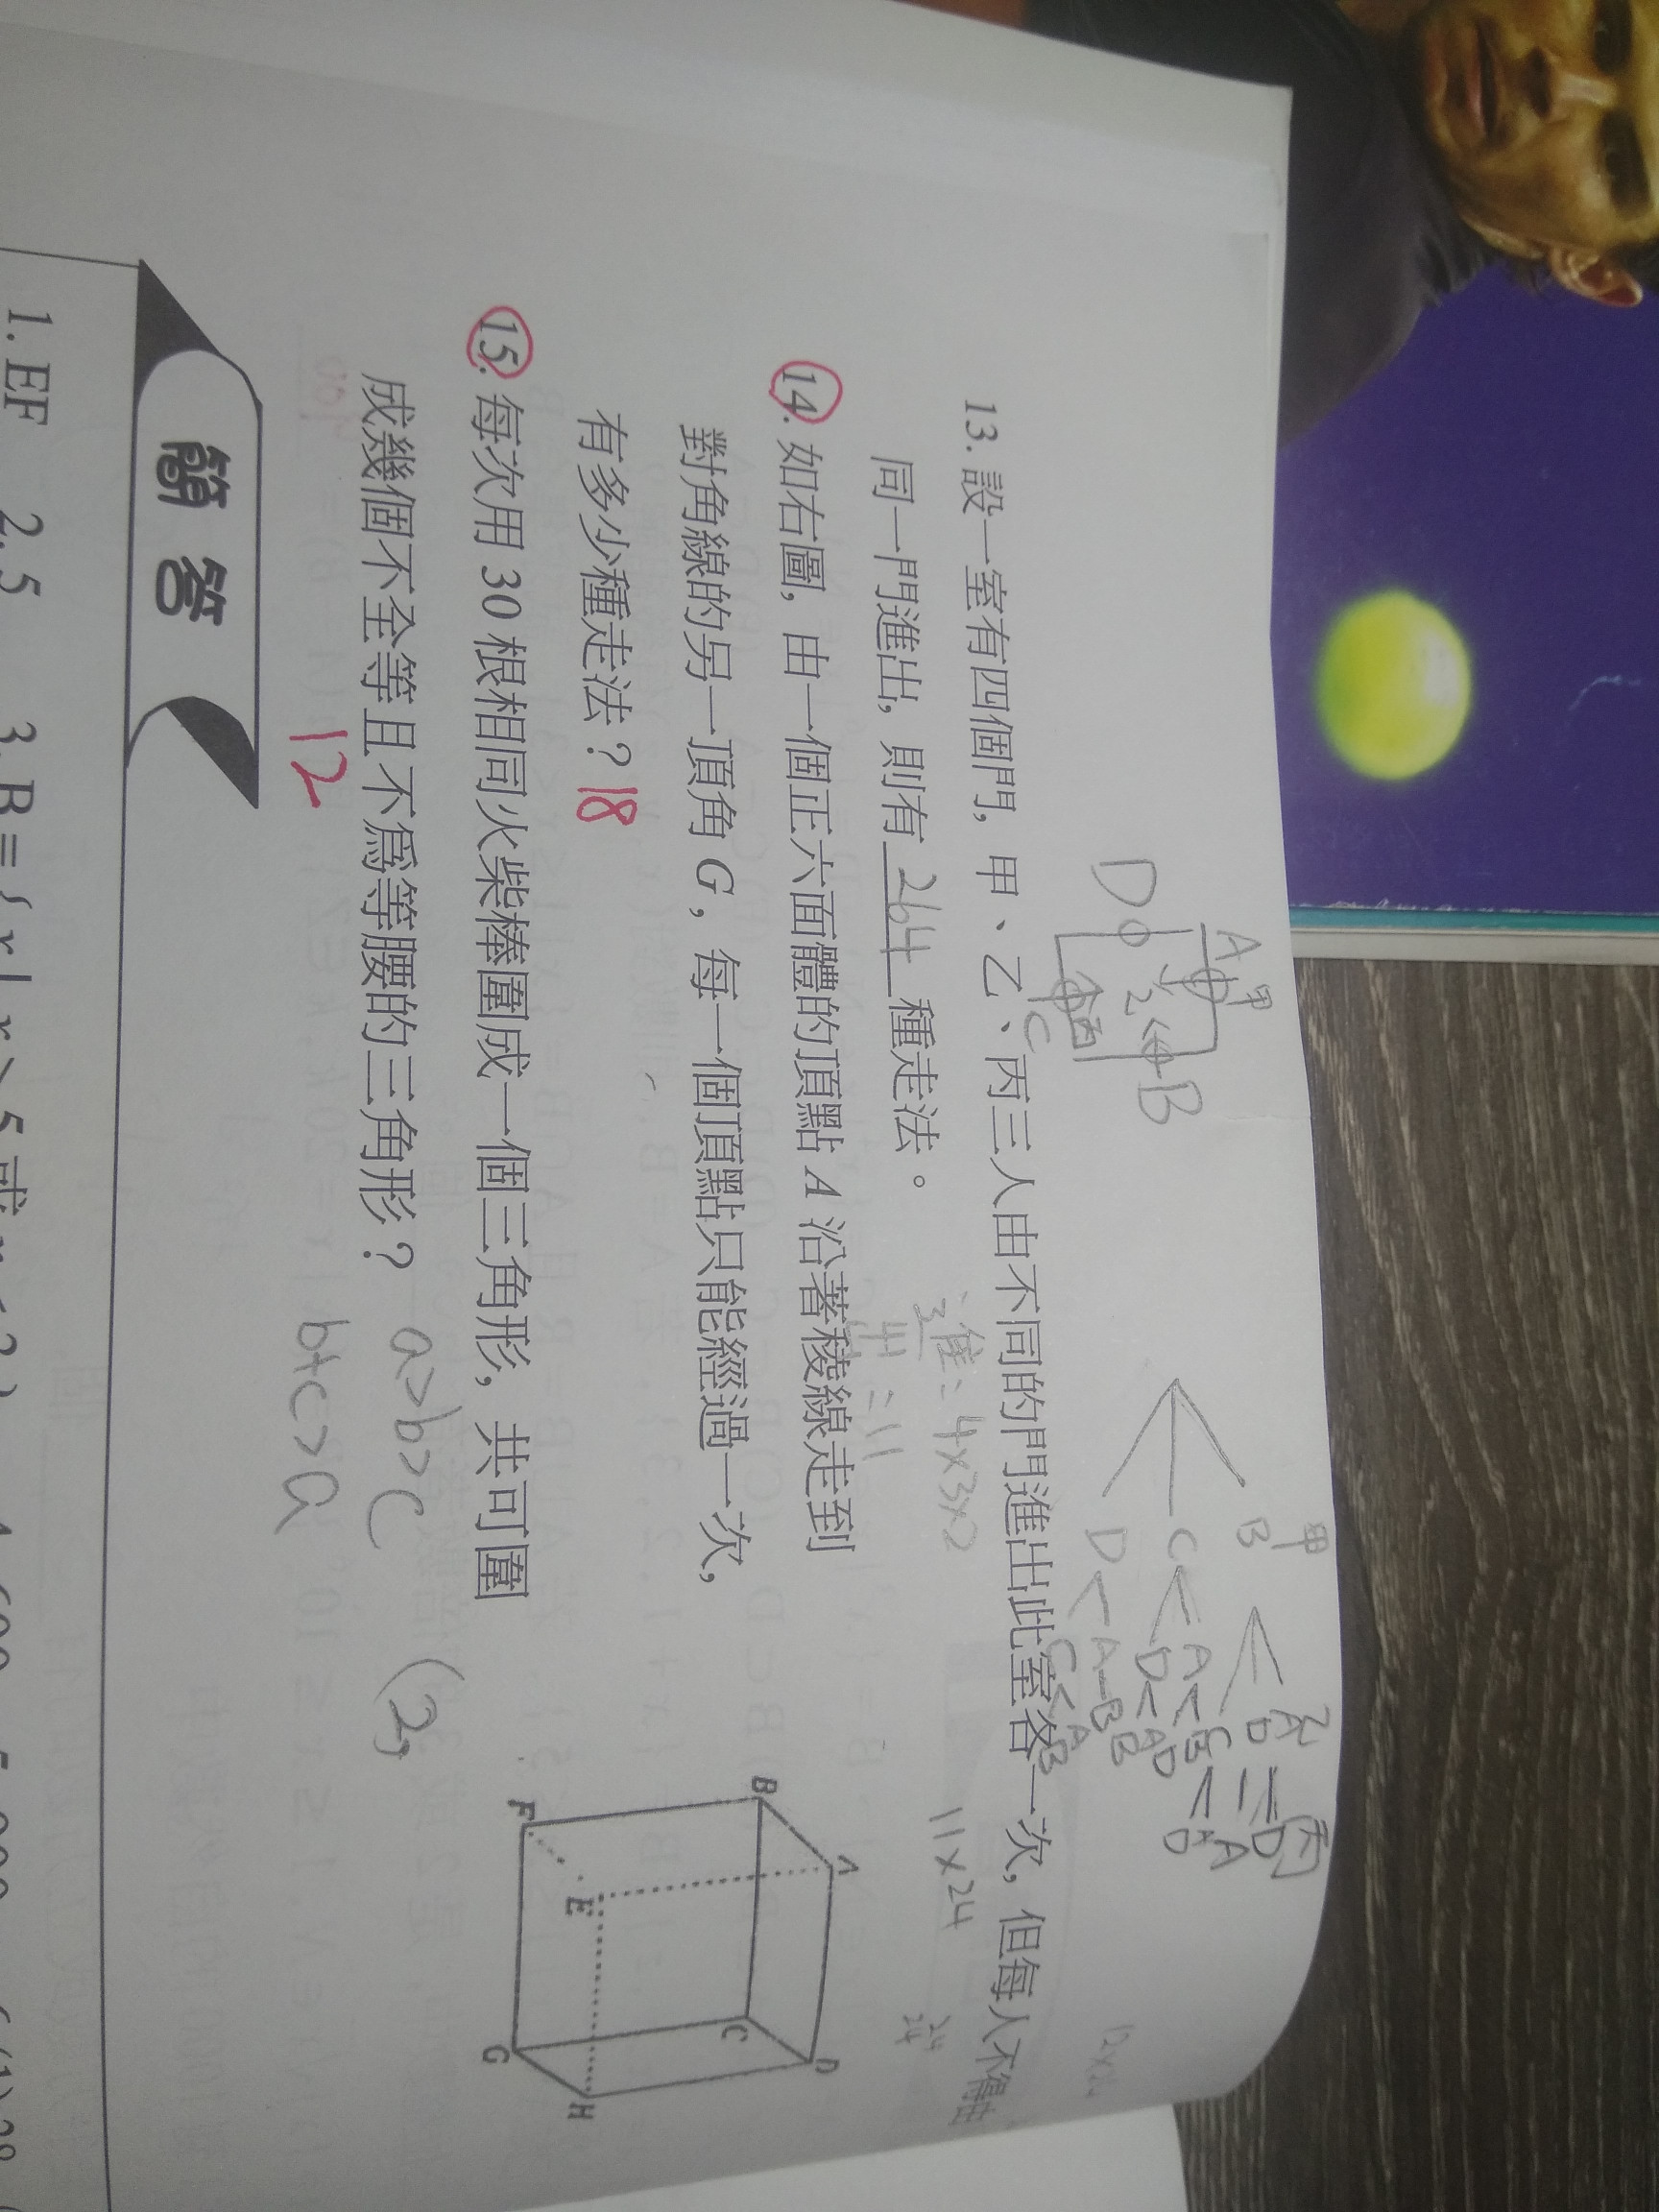 A 甲
D B
乙
丙
C
甲 乙 丙
B A D
D A
C A C A
B D
D A D
B
D A B
C A
B
12×24
13. 設一室有四個門，甲、乙、丙三人由不同的門進出此室各一次，但每人不得由
同一門進出，則有 264 種走法。
進：4×3×2
11×24
24
24
14. 如右圖，由一個正六面體的頂點 A 沿著稜線走到
對角線的另一頂角 G，每一個頂點只能經過一次，
有多少種走法？ 18
A
B
D
C
E
F
H
G
15. 每次用 30 根相同火柴棒圍成一個三角形，共可圍
成幾個不全等且不爲等腰的三角形？ a>b>c (2,
12 b+c>a
簡答
1. EF 2. 5 3. B={x|x>5或